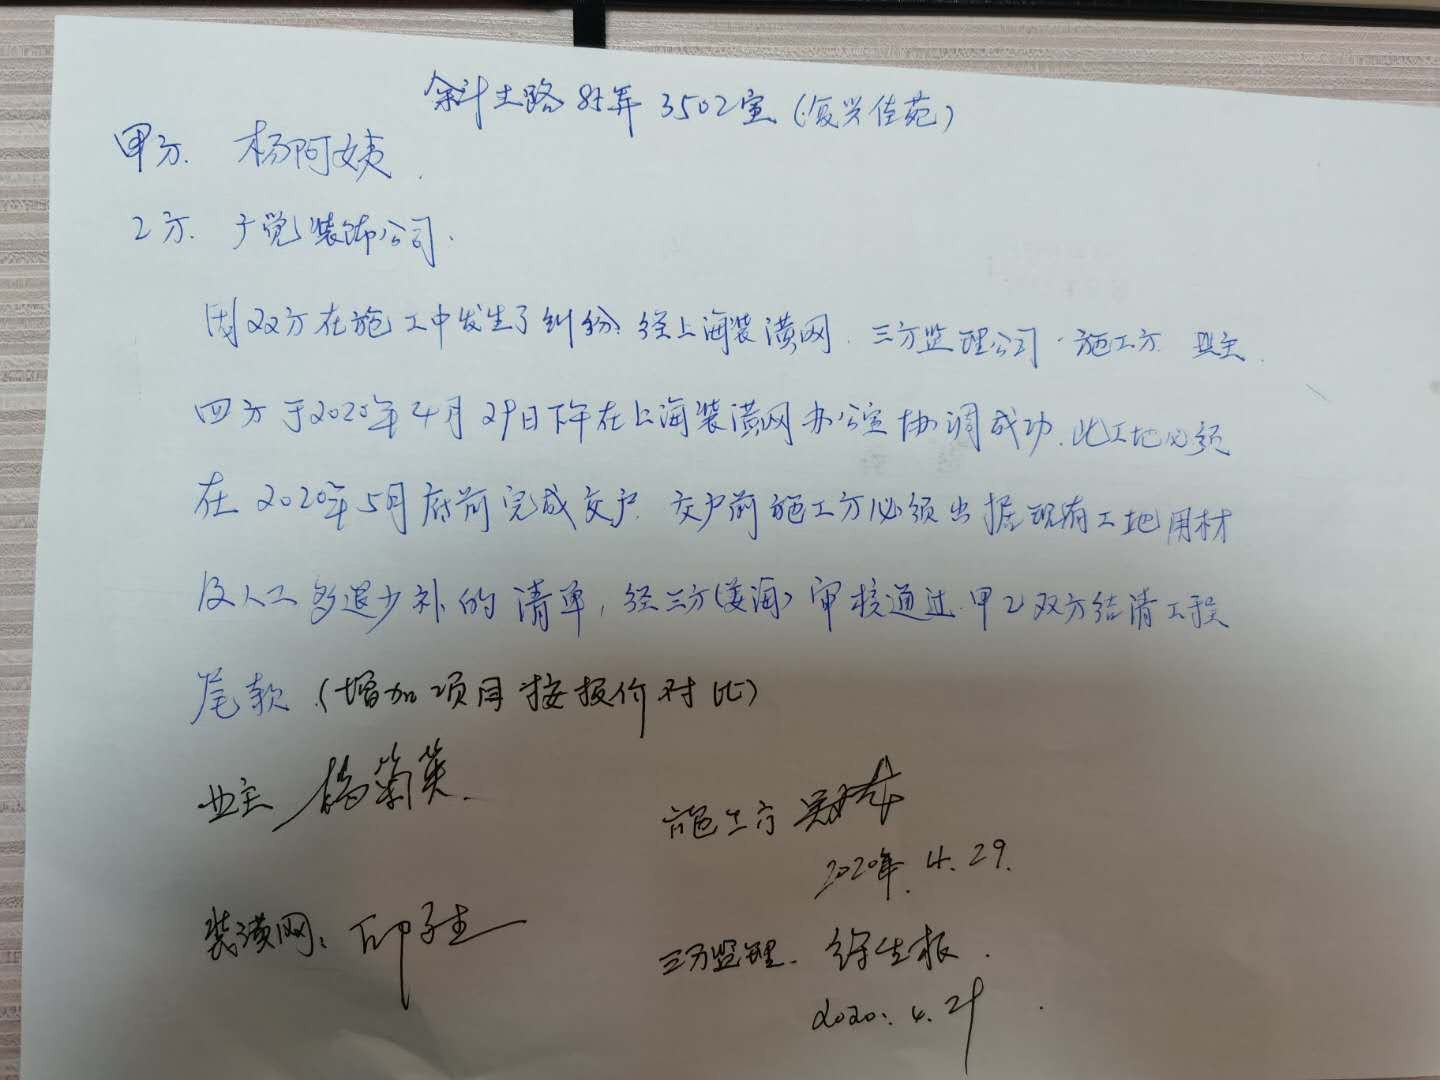 斜土路85弄3502室(复兴佳苑)
甲方. 杨阿姨.
乙方. 广觉装饰公司.
因双方在施工中发生了纠纷. 经上海装潢网. 三方监理公司. 施工方. 业主.
四方于2020年4月29日下午在上海装潢网办公室协调成功. 此工地必须
在2020年5月底前完成交户. 交户前施工方必须出据现有工地用材
及人工多退少补的清单, 经三方(沪海)审核通过. 甲乙双方结清工程
尾款.(增加项目按报价对比)
业主 杨菊英.
施工方
2020年.4.29.
装潢网: 邱子生
三方监理. 徐生根.
2020.4.29.